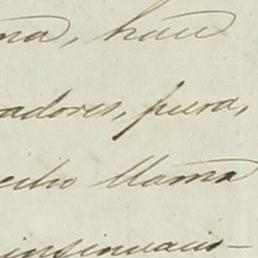 ma, han
adores, pura,
ecibo llama
insinuacio-